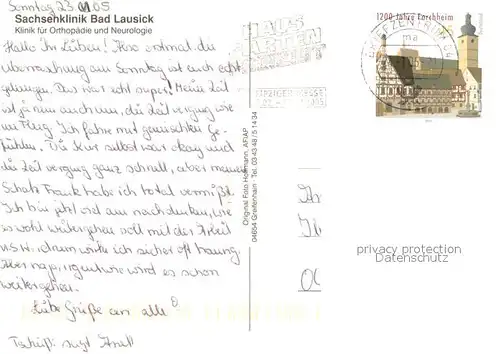 Sonntag 23.01.05
Sachsenklinik Bad Lausick
Klinik für Orthopädie und Neurologie
Hallo Ihr Lieben! Also erstmal die
Überraschung am Sonntag ist auch echt
gelungen. Das war echt super! Meine Zeit
ist ja nun auch um, die Zeit verging wie
im Flug. Ich fahre mit gemischten Ge-
fühlen. Die Kur selbst war okay und
die Zeit verging ganz schnell, aber meinen
Schatz Frank habe ich total vermißt.
Ich bin jetzt viel am nachdenken, wie
es wohl weitergehen soll mit der Arbeit
u.s.w., drum wirke ich sicher oft traurig.
Aber naja, irgendwie wird es schon
weitergehen.
Liebe Grüße an alle
Tschüß! sagt
Original Foto Hofmann, AFIAP
04654 Greifenhain · Tel. 03 43 48 / 5 14 34
HAUS
GARTEN
LEIPZIGER MESSE
1200 Jahre Forchheim
BRIEFZENTRUM 04
privacy protection
Datenschutz